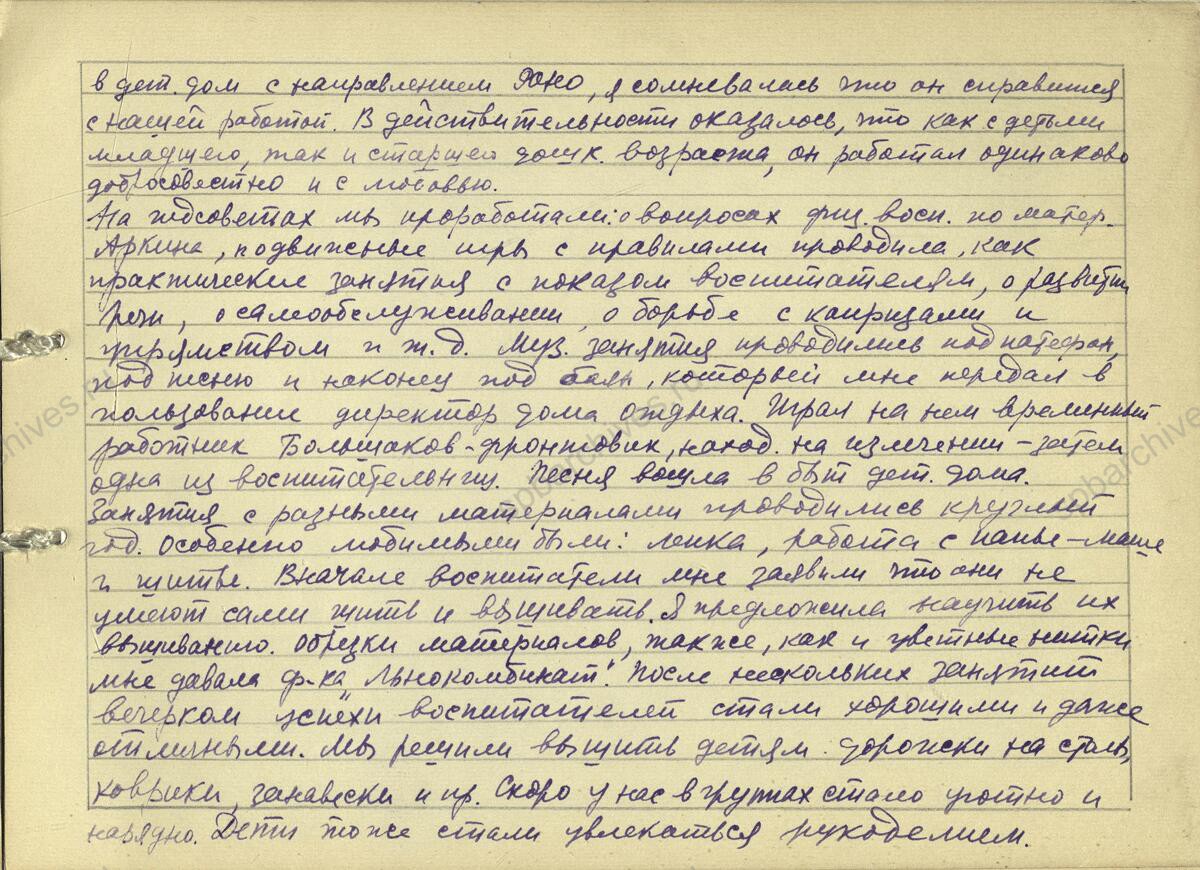 в дет. дом с направлением РОНО, я сомневалась что он справится
с нашей работой. В действительности оказалось, что как с детьми
младшего, так и старшего дошк. возраста, он работал одинаково
добросовестно и с любовью.
На педсоветах мы проработали: о вопросах физ. восп. по матер.
Аркина, подвижные игры с правилами проводила, как
практические занятия с показом воспитателям, о развитии
речи, о самообслуживании, о борьбе с капризами и
упрямством и т. д. Муз. занятия проводились под патефон,
под песню и наконец под баян, который мне передал в
пользование директор дома отдыха. Играл на нем временный
работник Большаков - фронтовик, наход. на излечении - затем
одна из воспитательниц. Песня вошла в быт дет. дома.
Занятия с разными материалами проводились круглый
год. Особенно любимыми были: лепка, работа с папье-маше
и шитье. Вначале воспитатели мне заявили что они не
умеют сами шить и вышивать. Я предложила научить их
вышиванию. Обрезки материалов, также, как и цветные нитки
мне давала ф-ка "Льнокомбинат". После нескольких занятий
вечерком успехи воспитателей стали хорошими и даже
отличными. Мы решили вышить детям дорожки на столы,
коврики, занавески и пр. Скоро у нас в группах стало уютно и
нарядно. Дети тоже стали увлекаться рукоделием.